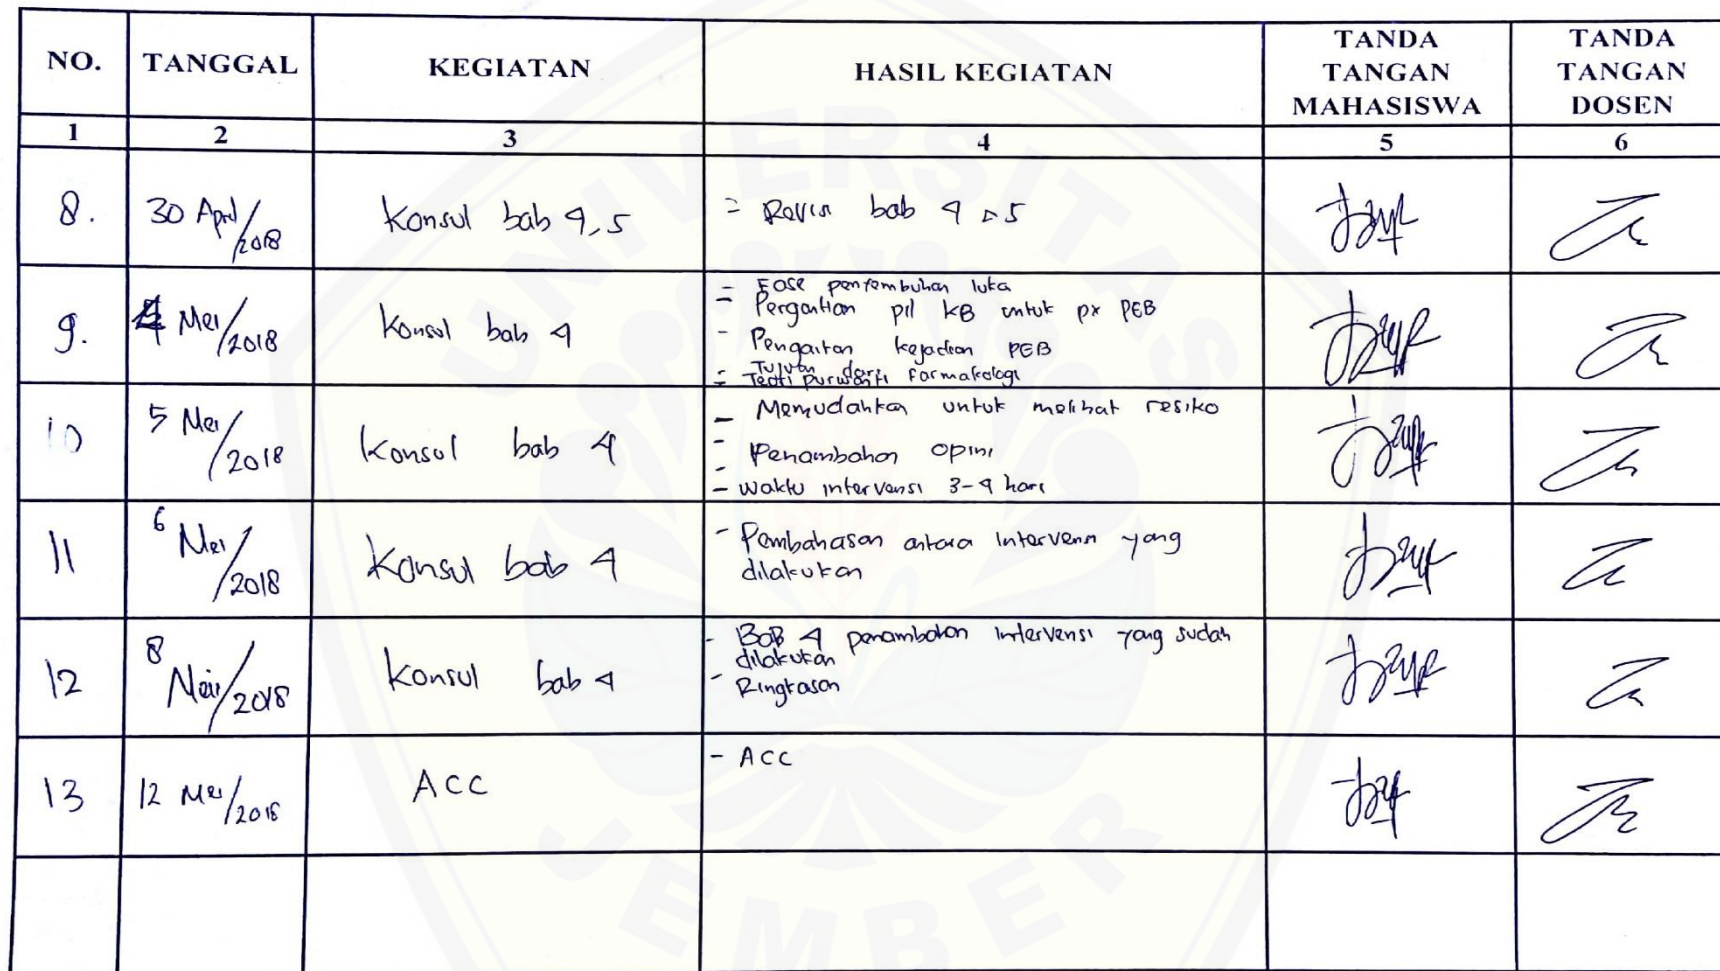 NO. TANGGAL KEGIATAN HASIL KEGIATAN TANDA TANGAN MAHASISWA TANDA TANGAN DOSEN
1 2 3 4 5 6
8. 30 April/2018 Konsul bab 4,5 = Revisi bab 4 & 5
9. 4 Mei/2018 Konsul bab 4 - Fase penyembuhan luka
- Pergantian pil KB untuk px PEB
- Pengaitan kejadian PEB
- Tujuan dari farmakologi
- Teori purwanti
10 5 Mei/2018 Konsul bab 4 - Memudahkan untuk melihat resiko
- Penambahan opini
- Waktu intervensi 3-4 hari
11 6 Mei/2018 Konsul bab 4 - Pembahasan antara intervensi yang
dilakukan
12 8 Mei/2018 Konsul bab 4 - BAB 4 penambahan intervensi yang sudah
dilakukan
- Ringkasan
13 12 Mei/2018 ACC - ACC
UNIVERSITAS
JEMBER